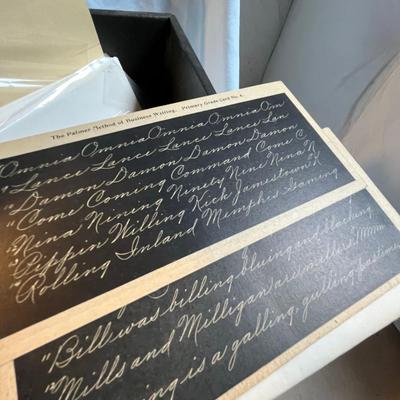 The Palmer Method of Business Writing. Primary Grade Card No. 4.
Omnia Omnia Omnia Omnia Om
"Lance Lance Lance Lance Lan
"Damon Damon Damon Damon
"Come Coming Command Come C
"Nina Nining Ninety Nine Nina N
"Pippin Willing Kick Jamestown K
"Rolling Inland Memphis Gaming
"Bill was billing bluing and blacking
"Mills and Milligan are millers Mmm
is a galling, gulling pastime